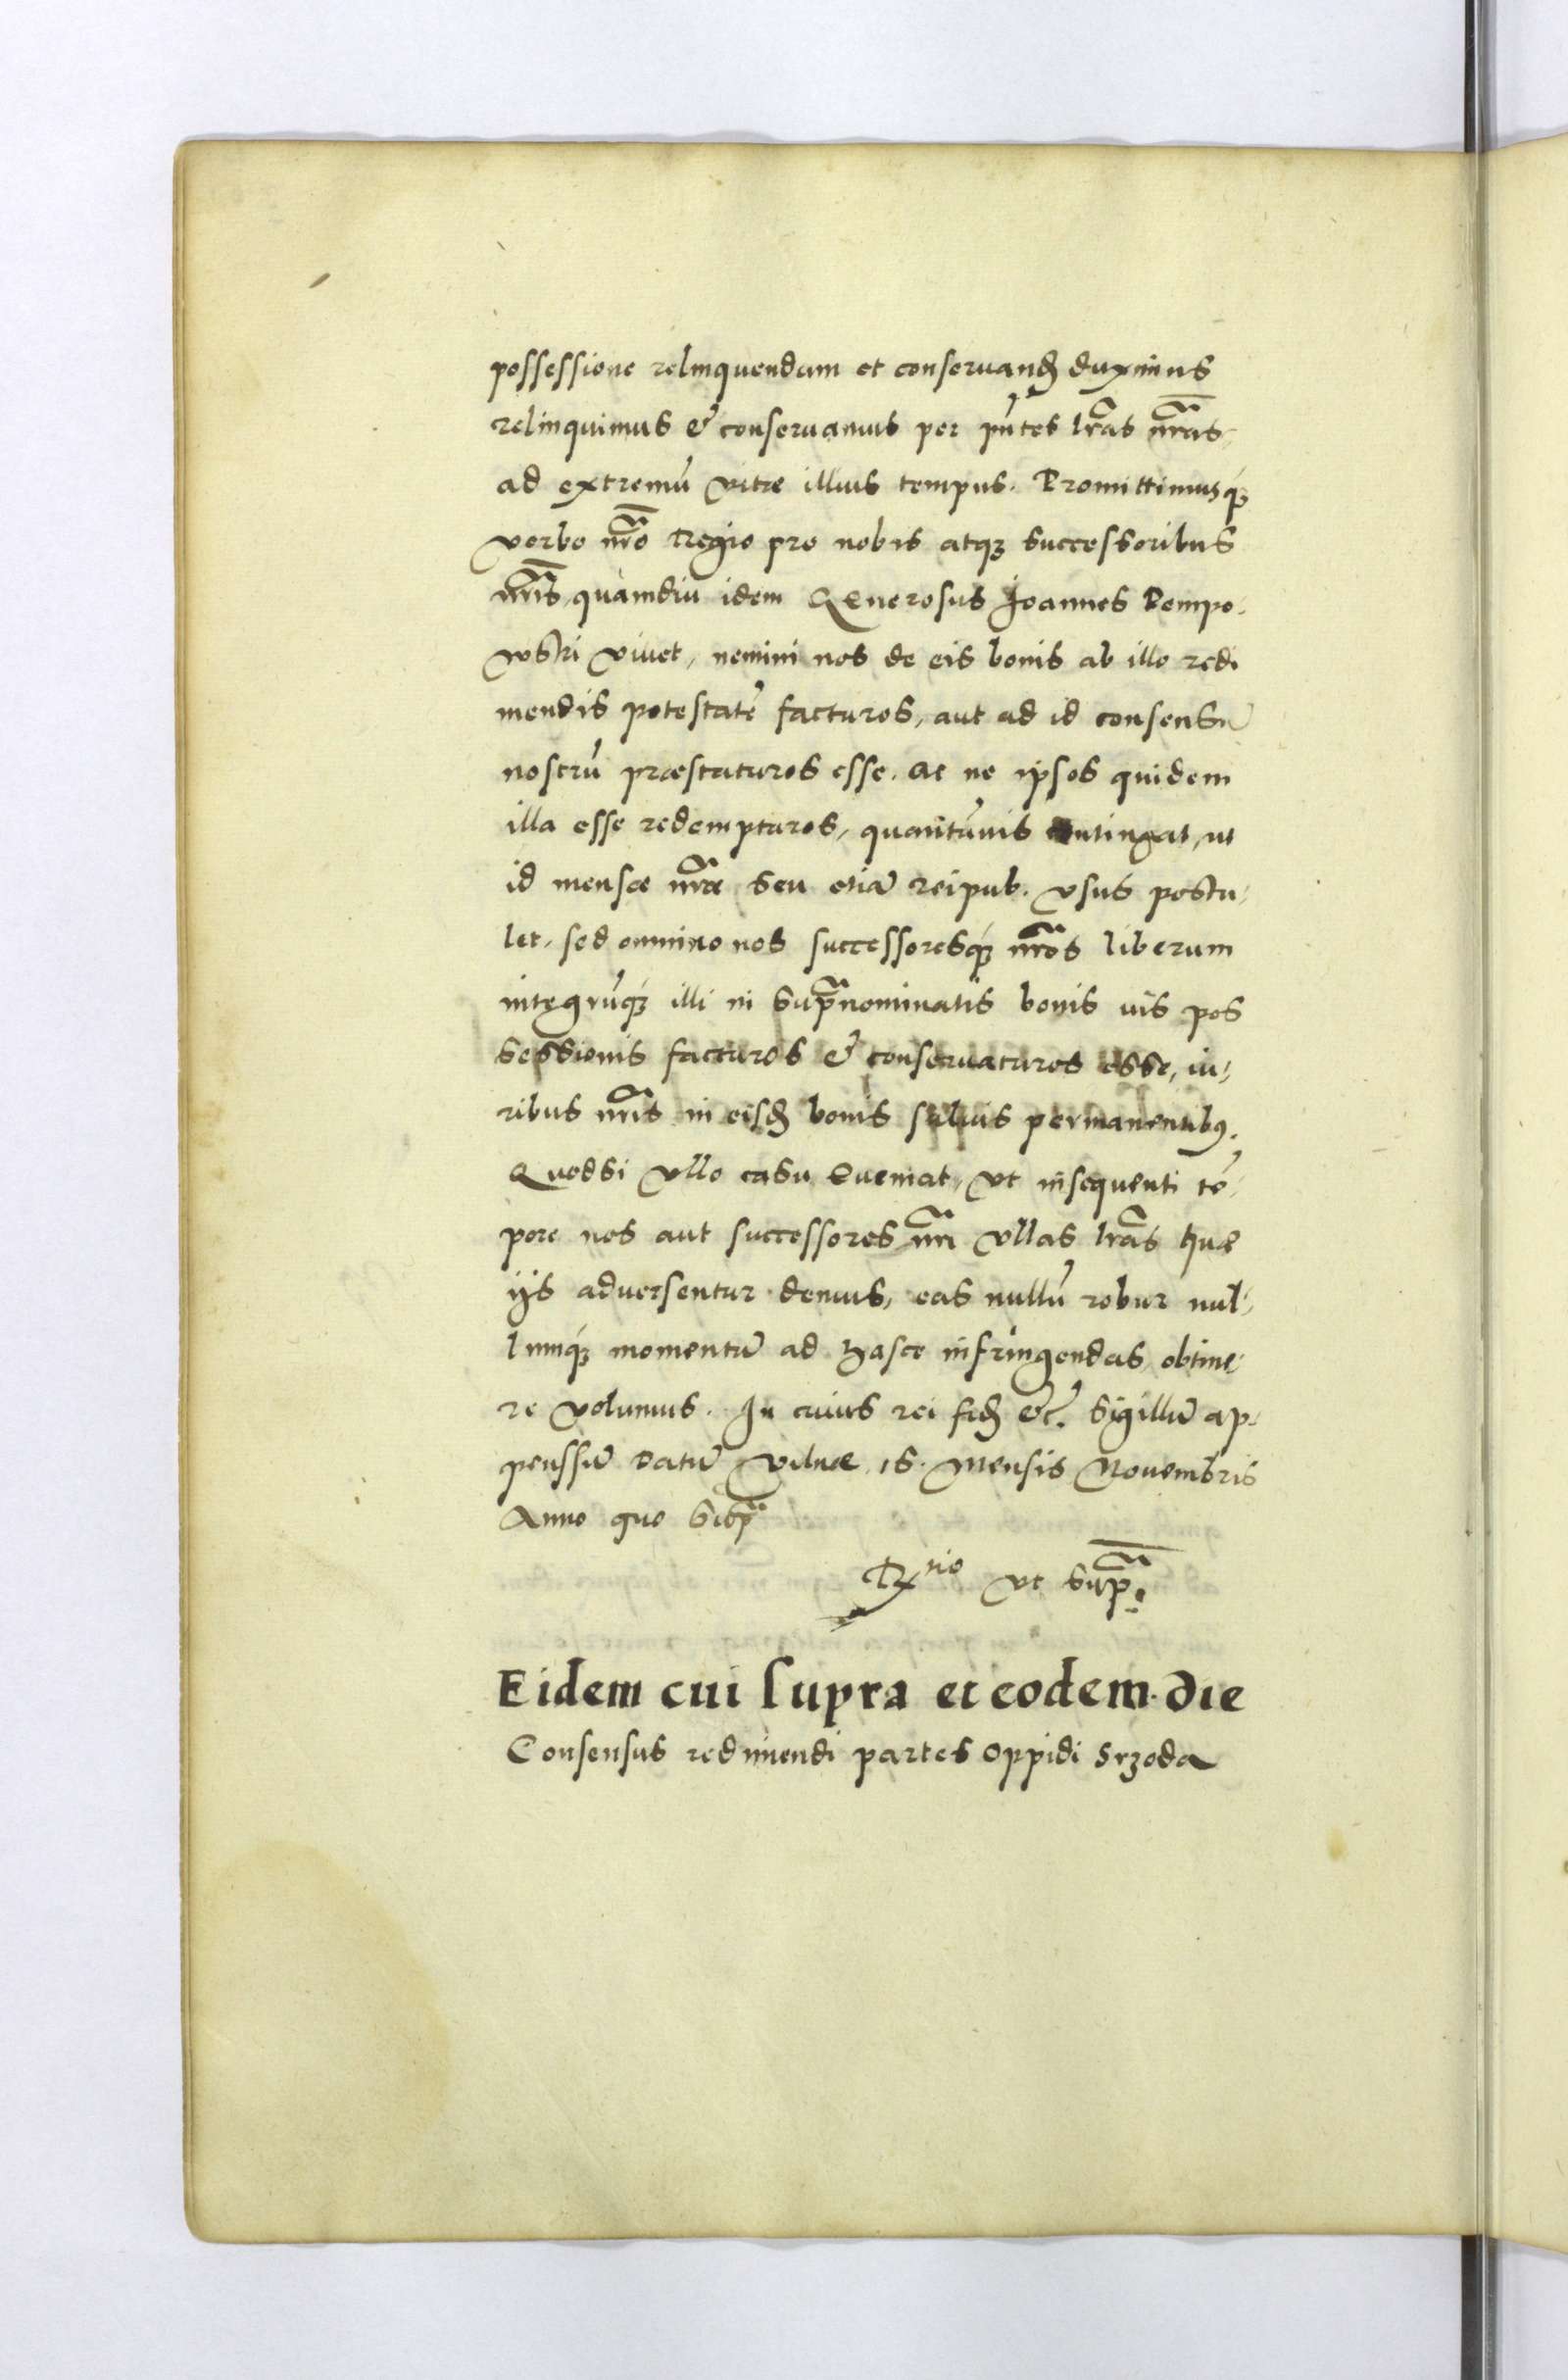 possessione relinquendam et conseruandꝫ duximus
relinquimus & conseruamus per pñtes lr̃as nr̃as
ad extremũ vitæ illius tempus. Promittimusqꝫ
verbo nr̃o Regio pro nobis atqꝫ successoribus
nr̃is, quamdiu idem Generosus Joannes Dempo-
wski viuet, nemini nos de eis bonis ab illo redi
mendis potestatẽ facturos, aut ad id consensũ
nostrũ præstaturos esse. ac ne ipsos quidem
illa esse redempturos, quantũuis contingat, ut
id mensæ nr̃æ seu etiã reipub. vsus postu-
let. sed omnino nos successoresqꝫ nr̃os liberum
integrũqꝫ illi in supranominatis bonis ius pos
sessionis facturos & conseruaturos esse, iu-
ribus nr̃is in eisdꝫ bonis saluis permanentibꝰ.
Quodsi vllo casu Eueniat, vt insequenti tẽ-
pore nos aut successores nr̃i vllas lr̃as huæ
ijs aduersentur demus, eas nullũ robur nul-
lumqꝫ momentũ ad hasce infringendas obtine-
re volumus. In cuius rei fidꝫ &c. Sigillũ ap-
penssũ Datũ Vilnæ 16. Mensis Nouembris
Anno quo Supᷓ
R\tio vt supᷓ.
Eidem cui supra et eodem die
Consensus redimendi partes Oppidi Srzoda